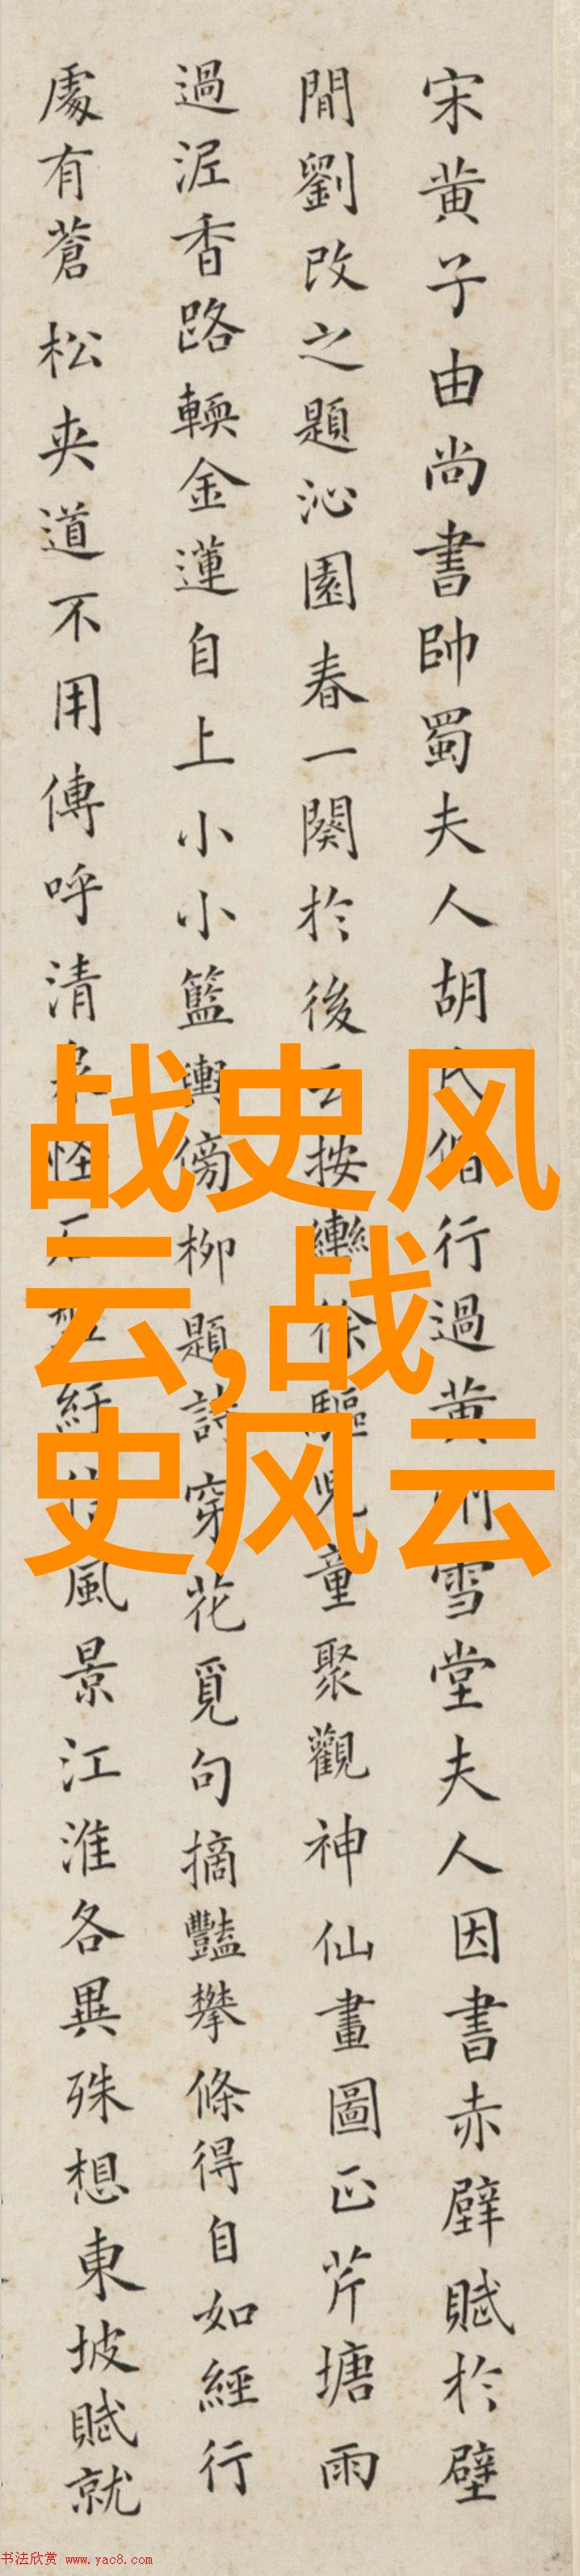 宋黄子由尚書帥蜀夫人胡氏偕行過黄州雪堂夫人因書赤壁賦於壁
間劉改之題沁園春一闋於後云按轡徐驅兒童聚觀神仙畫圖正芹塘雨
過泥香路輭金蓮自上小小籃輿傍柳題詩穿花覓句摘豔攀條得自如經行
處有蒼松夾道不用傳呼清泉怪石盤紆信風景江淮各異殊想東坡賦就
战史风
云,战
史风云
书法欣赏 www.yac8.com